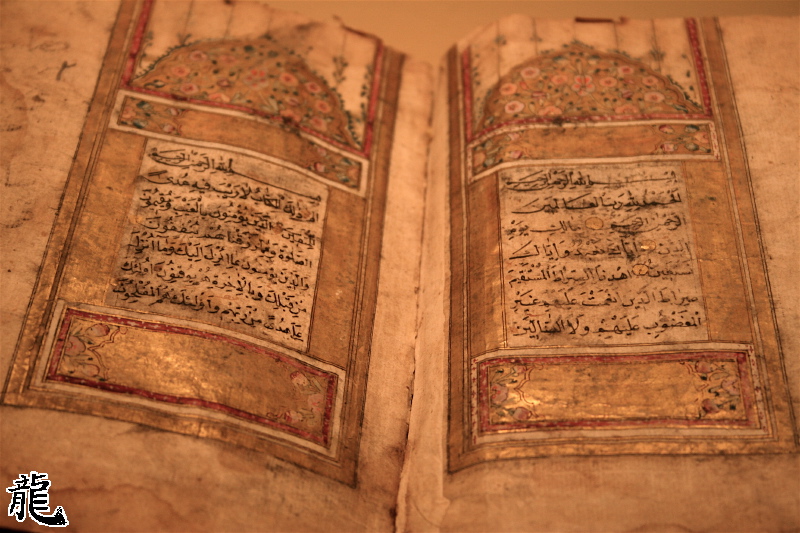 بسم الله الرحمن الرحيم
الحمد لله رب العالمين
الرحمن الرحيم مالك يوم
الدين اياك نعبد واياك
نستعين اهدنا الصراط المستقيم
صراط الذين انعمت عليهم غير
المغضوب عليهم ولا الضالين
بسم الله الرحمن الرحيم
الم ذلك الكتاب لا ريب فيه هدى
للمتقين الذين يؤمنون بالغيب ويقيمون
الصلوة ومما رزقناهم ينفقون
والذين يؤمنون بما انزل اليك وما انزل
من قبلك وبالاخرة هم يوقنون اولئك
على هدى من ربهم واولئك هم المفلحون
龍